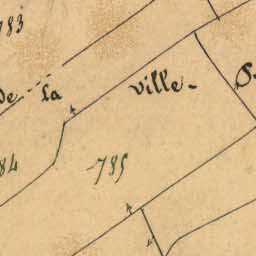 783
de la ville-
84
785